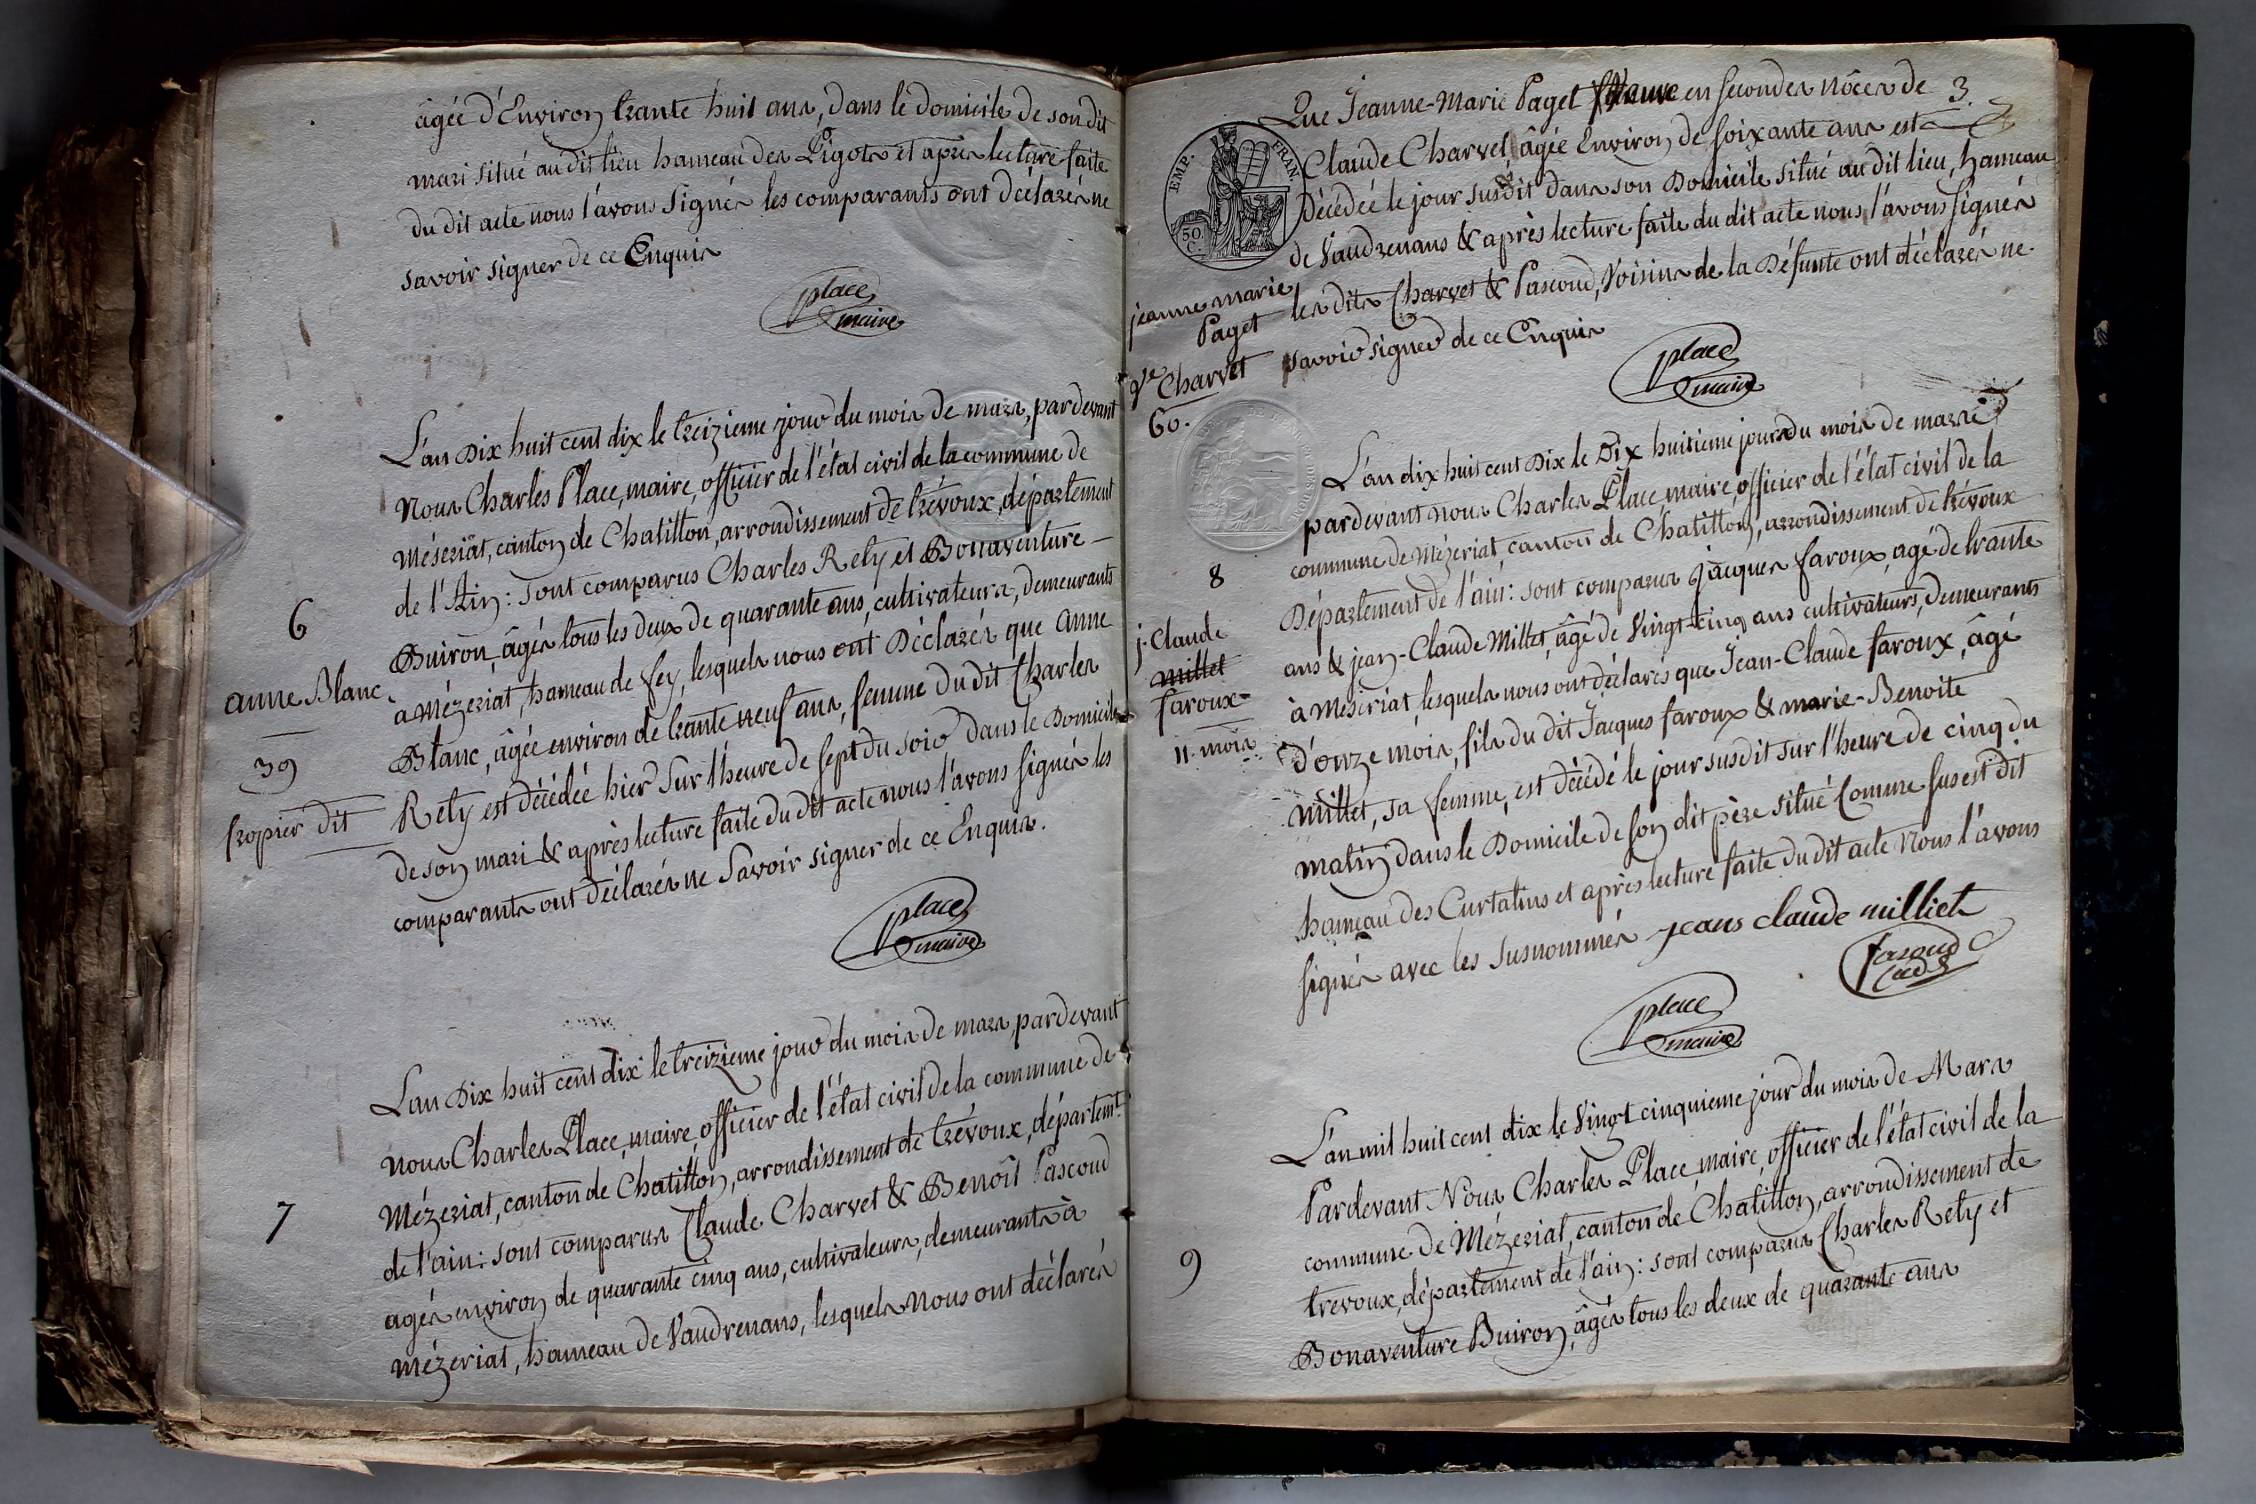 âgée d'Environ trante huit ans, dans le domicile de son dit
mari situé au dit lieu hameau des Pigots et après lecture faite
du dit acte nous l'avons Signés les comparants ont déclarés ne
savoir signer de ce Enquis
place
maire
L'an Dix huit cent dix le treizieme jour du mois de mars, pardevant
Nous Charles Place, maire, officier de l'état civil de la commune de
Méseriat, canton de Chatillon, arrondissement de trévoux, département
de l'Ain : sont comparus Charles Rety et Bonaventure
6
Buiron, âgés tous les deux de quarante ans, cultivateurs, demeurants
à Mézeriat, hameau de Fey, lesquels nous ont Déclarés que Anne
anne Blanc
Blanc, âgée environ de trante neuf ans, femme du dit Charles
39
Rety est décédée hier Sur l'heure de sept du soir dans le Domicile
tropier dit
de son mari & après lecture faite du dit acte nous l'avons signés les
comparants ont déclarés ne Savoir signer de ce Enquis.
place
maire
L'an Dix huit cent dix le treizieme jour du mois de mars, pardevant
nous Charles Place, maire, officier de l'état civil de la commune de
Mézeriat, canton de Chatillon, arrondissement de trévoux, départemt
de l'ain : sont comparus Claude Charvet & Benoît Pascoud
7
agés environ de quarante cinq ans, cultivateurs, demeurants à
Mézeriat, hameau de Vaudrenans, lesquels Nous ont déclarés
3.
Que Jeanne-Marie Paget veuve en secondes nôces de
EMP. FRAN.
50. C.
Claude Charvet, âgée Environ de soixante ans est
Décédée le jour susdit dans son Domicile situé au dit lieu, hameau
de Vaudrenans & après lecture faite du dit acte nous l'avons signés
jeanne marie
Paget
les dits Charvet & Pascoud, Voisins de la Défunte ont déclarés ne
savoir signer de ce Enquis
ve Charvet
60.
place
maire
L'an dix huit cent Dix le Dix huitieme jour du mois de mars
pardevant nous Charles Place, maire, officier de l'état civil de la
commune de Mézeriat, canton de Chatillon, arrondissement de trévoux
8
Département de l'ain : sont comparus jacques faroux, agé de trante
ans & jean-Claude Millet, âgé de Vingt-cinq ans cultivateurs, demeurants
j. Claude
millet
faroux
11. mois
à Meseriat, lesquels nous ont déclarés que Jean-Claude faroux, âgé
d'onze mois, fils du dit Jacques faroux & marie-Benoite
Millet, sa femme, est décédé le jour susdit sur l'heure de cinq du
matin dans le Domicile de son dit père situé Comme sus est dit
hameau des Curtalins et après lecture faite du dit acte Nous l'avons
signés avec les susnommés jeans claude milliet
place
maire
L'an mil huit cent dix le Vingt cinquieme jour du mois de Mars
Pardevant Nous Charles Place, maire, officier de l'état civil de la
commune de Mézeriat, canton de Chatillon, arrondissement de
9
trevoux, département de l'ain : sont comparus Charles Rety et
Bonaventure Buiron, âgés tous les deux de quarante ans